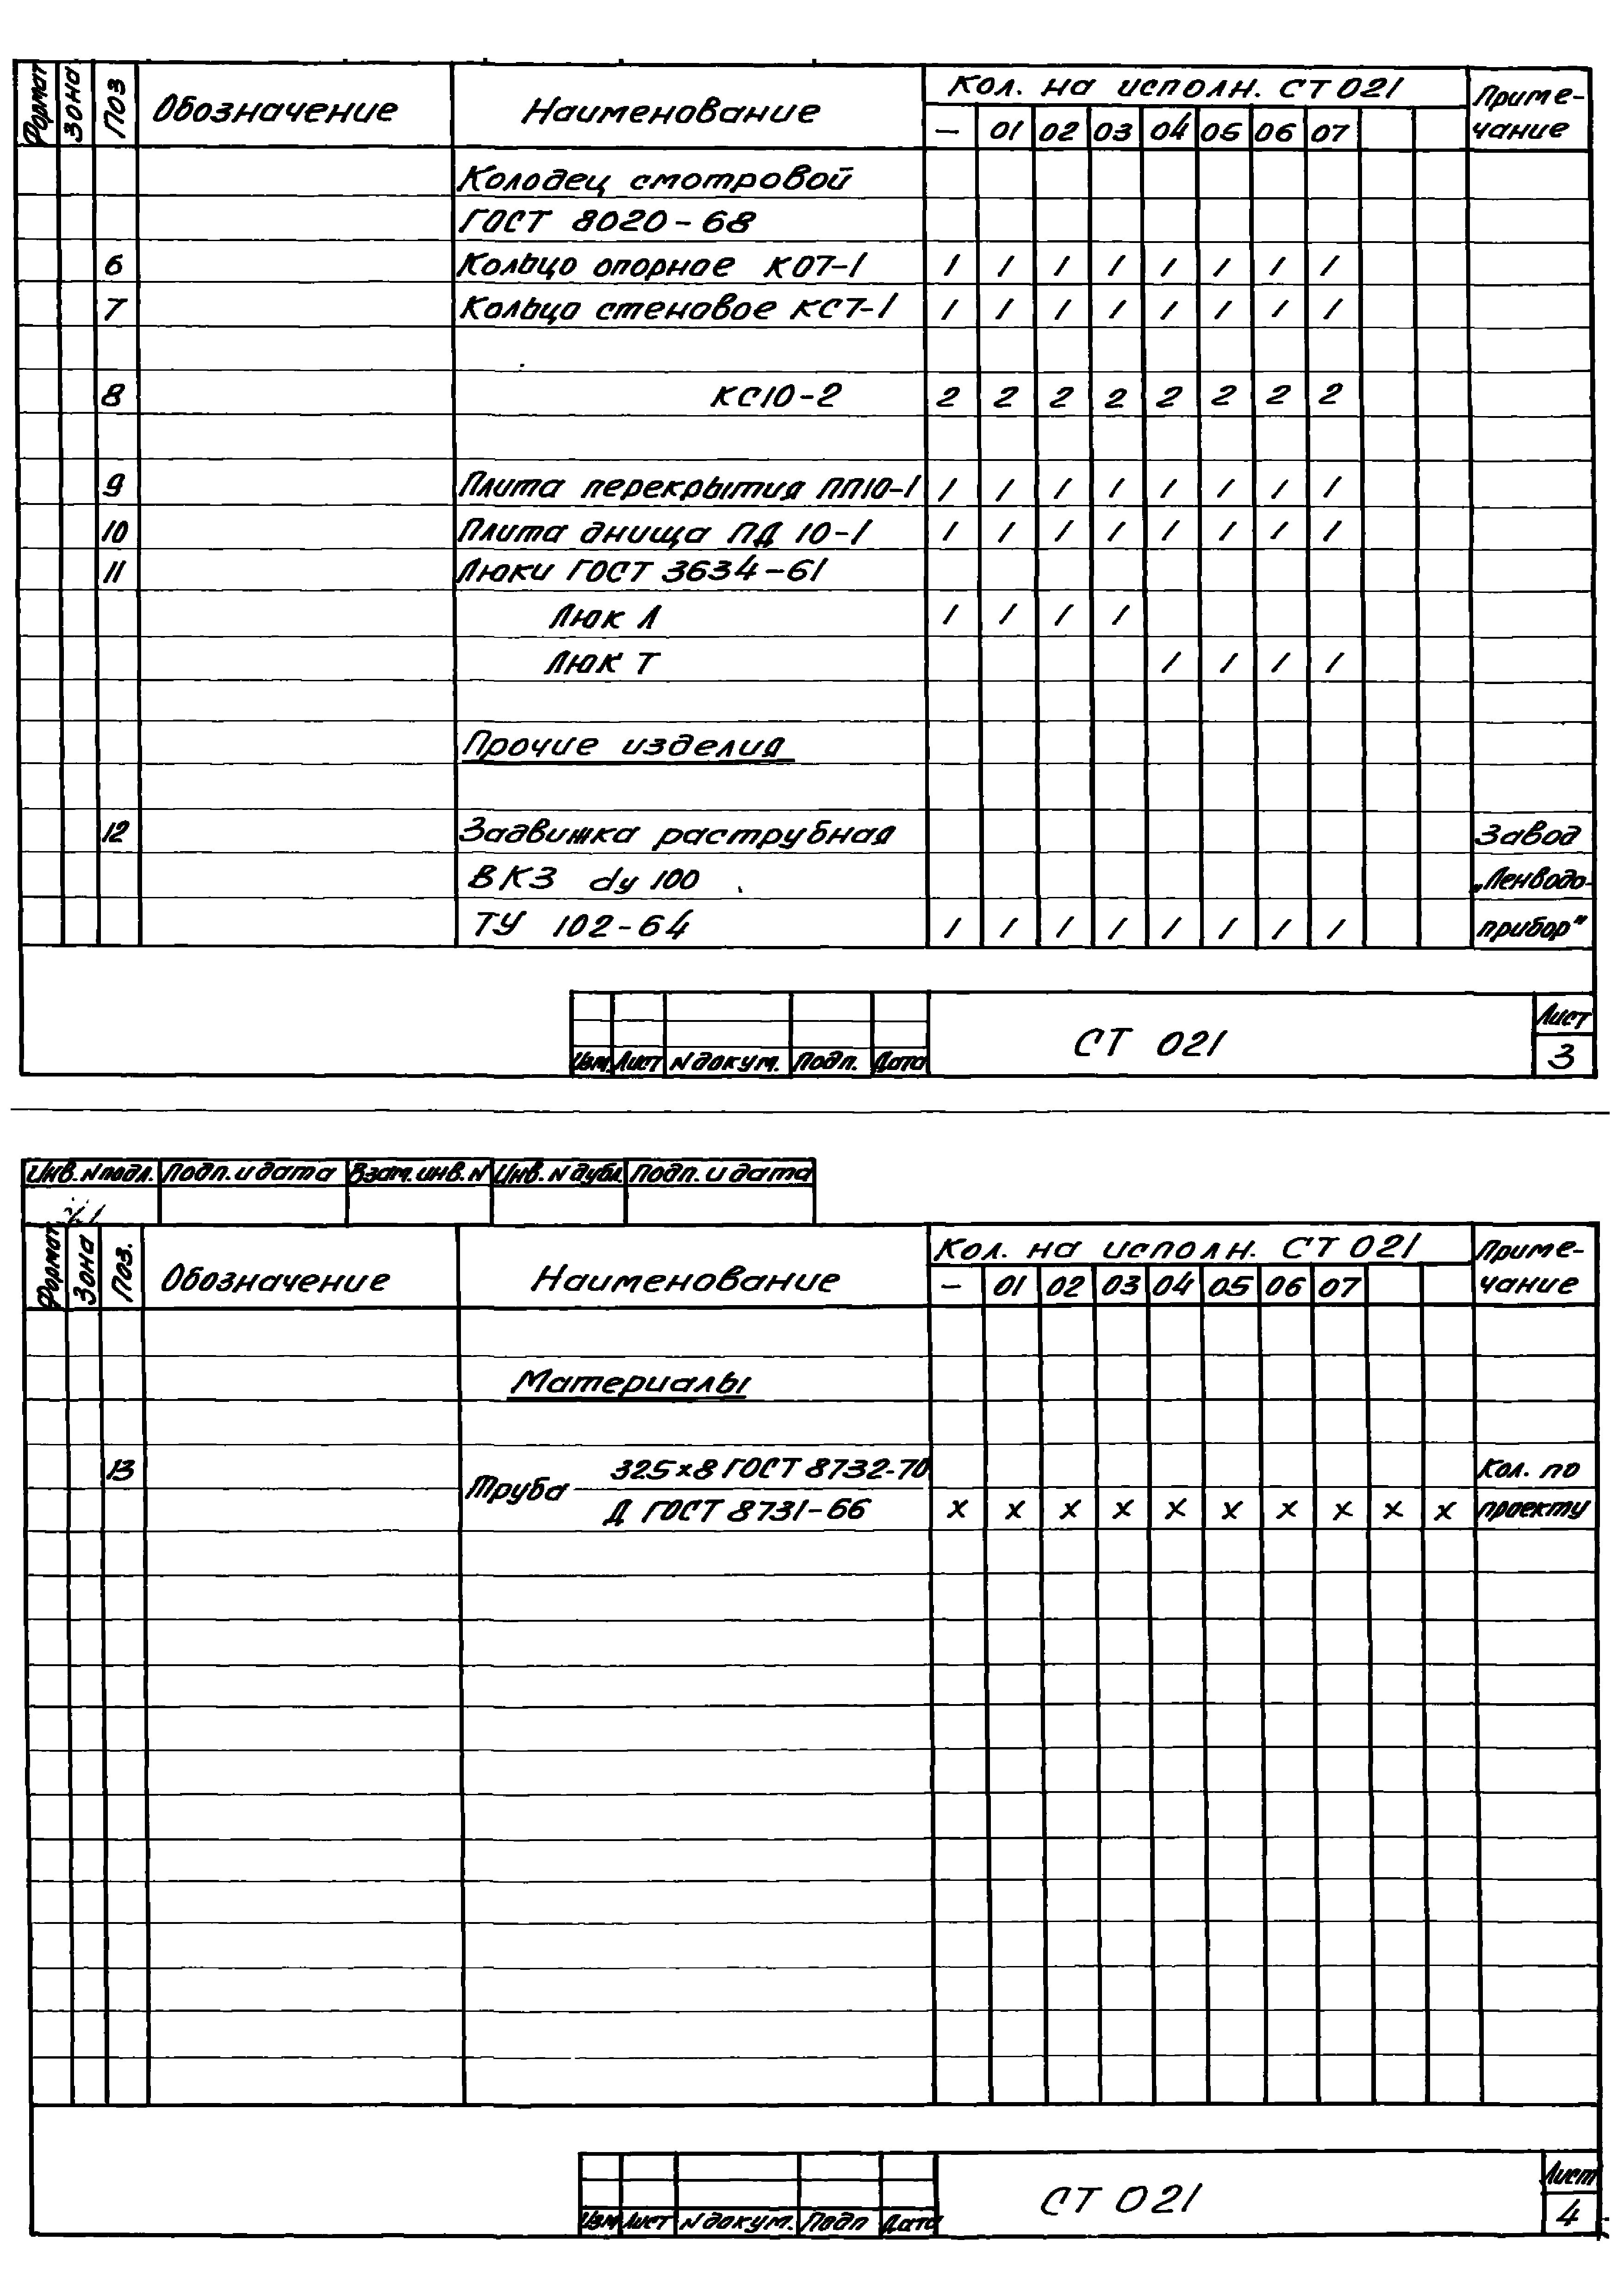 Формат Зона Поз Обозначение Наименование Кол. на исполн. СТ 021 Приме-
чание
— 01 02 03 04 05 06 07
Колодец смотровой
ГОСТ 8020-68
6 Кольцо опорное КО7-1 1 1 1 1 1 1 1 1
7 Кольцо стеновое КС7-1 1 1 1 1 1 1 1 1
8 КС10-2 2 2 2 2 2 2 2 2
9 Плита перекрытия ПП10-1 1 1 1 1 1 1 1 1
10 Плита днища ПД 10-1 1 1 1 1 1 1 1 1
11 Люки ГОСТ 3634-61
Люк Л 1 1 1 1
Люк Т 1 1 1 1
Прочие изделия
12 Задвижка раструбная Завод
ВКЗ dy 100 „Ленводо-
ТУ 102-64 1 1 1 1 1 1 1 1 прибор"
СТ 021 Лист
Изм Лист N докум. Подп. Дата 3
Инв. N подл. Подп. и дата Взам. инв. N Инв. N дубл. Подп. и дата
Формат Зона Поз. Обозначение Наименование Кол. на исполн. СТ 021 Приме-
чание
— 01 02 03 04 05 06 07
Материалы
13 Труба 325×8 ГОСТ 8732-70 Кол. по
Д ГОСТ 8731-66 х х х х х х х х х х проекту
СТ 021 Лист
Изм Лист N докум. Подп Дата 4